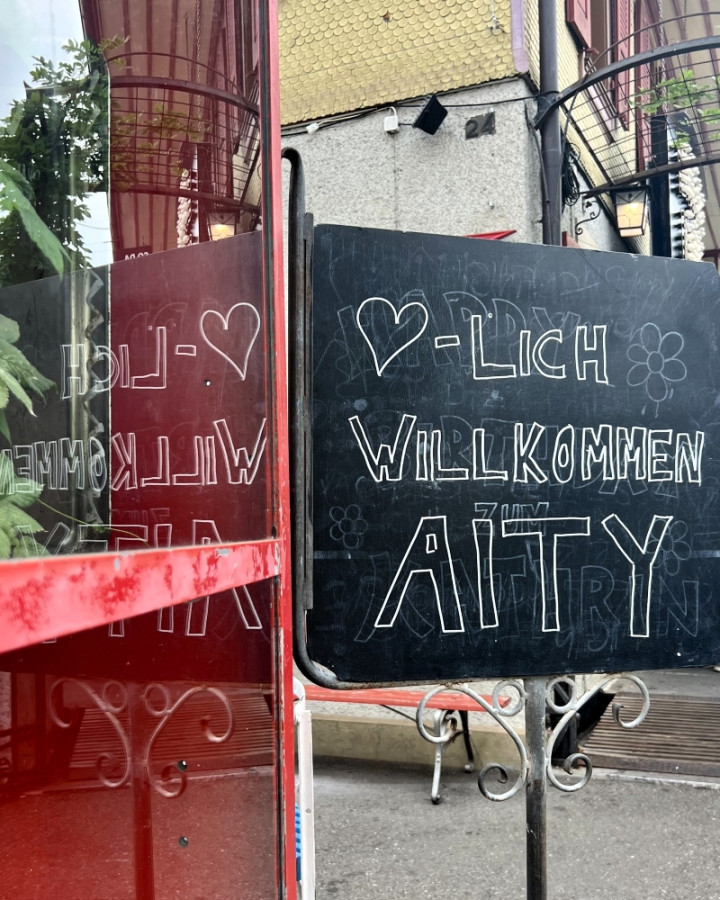 24
♡-LICH
WILLKOMMEN
AITY